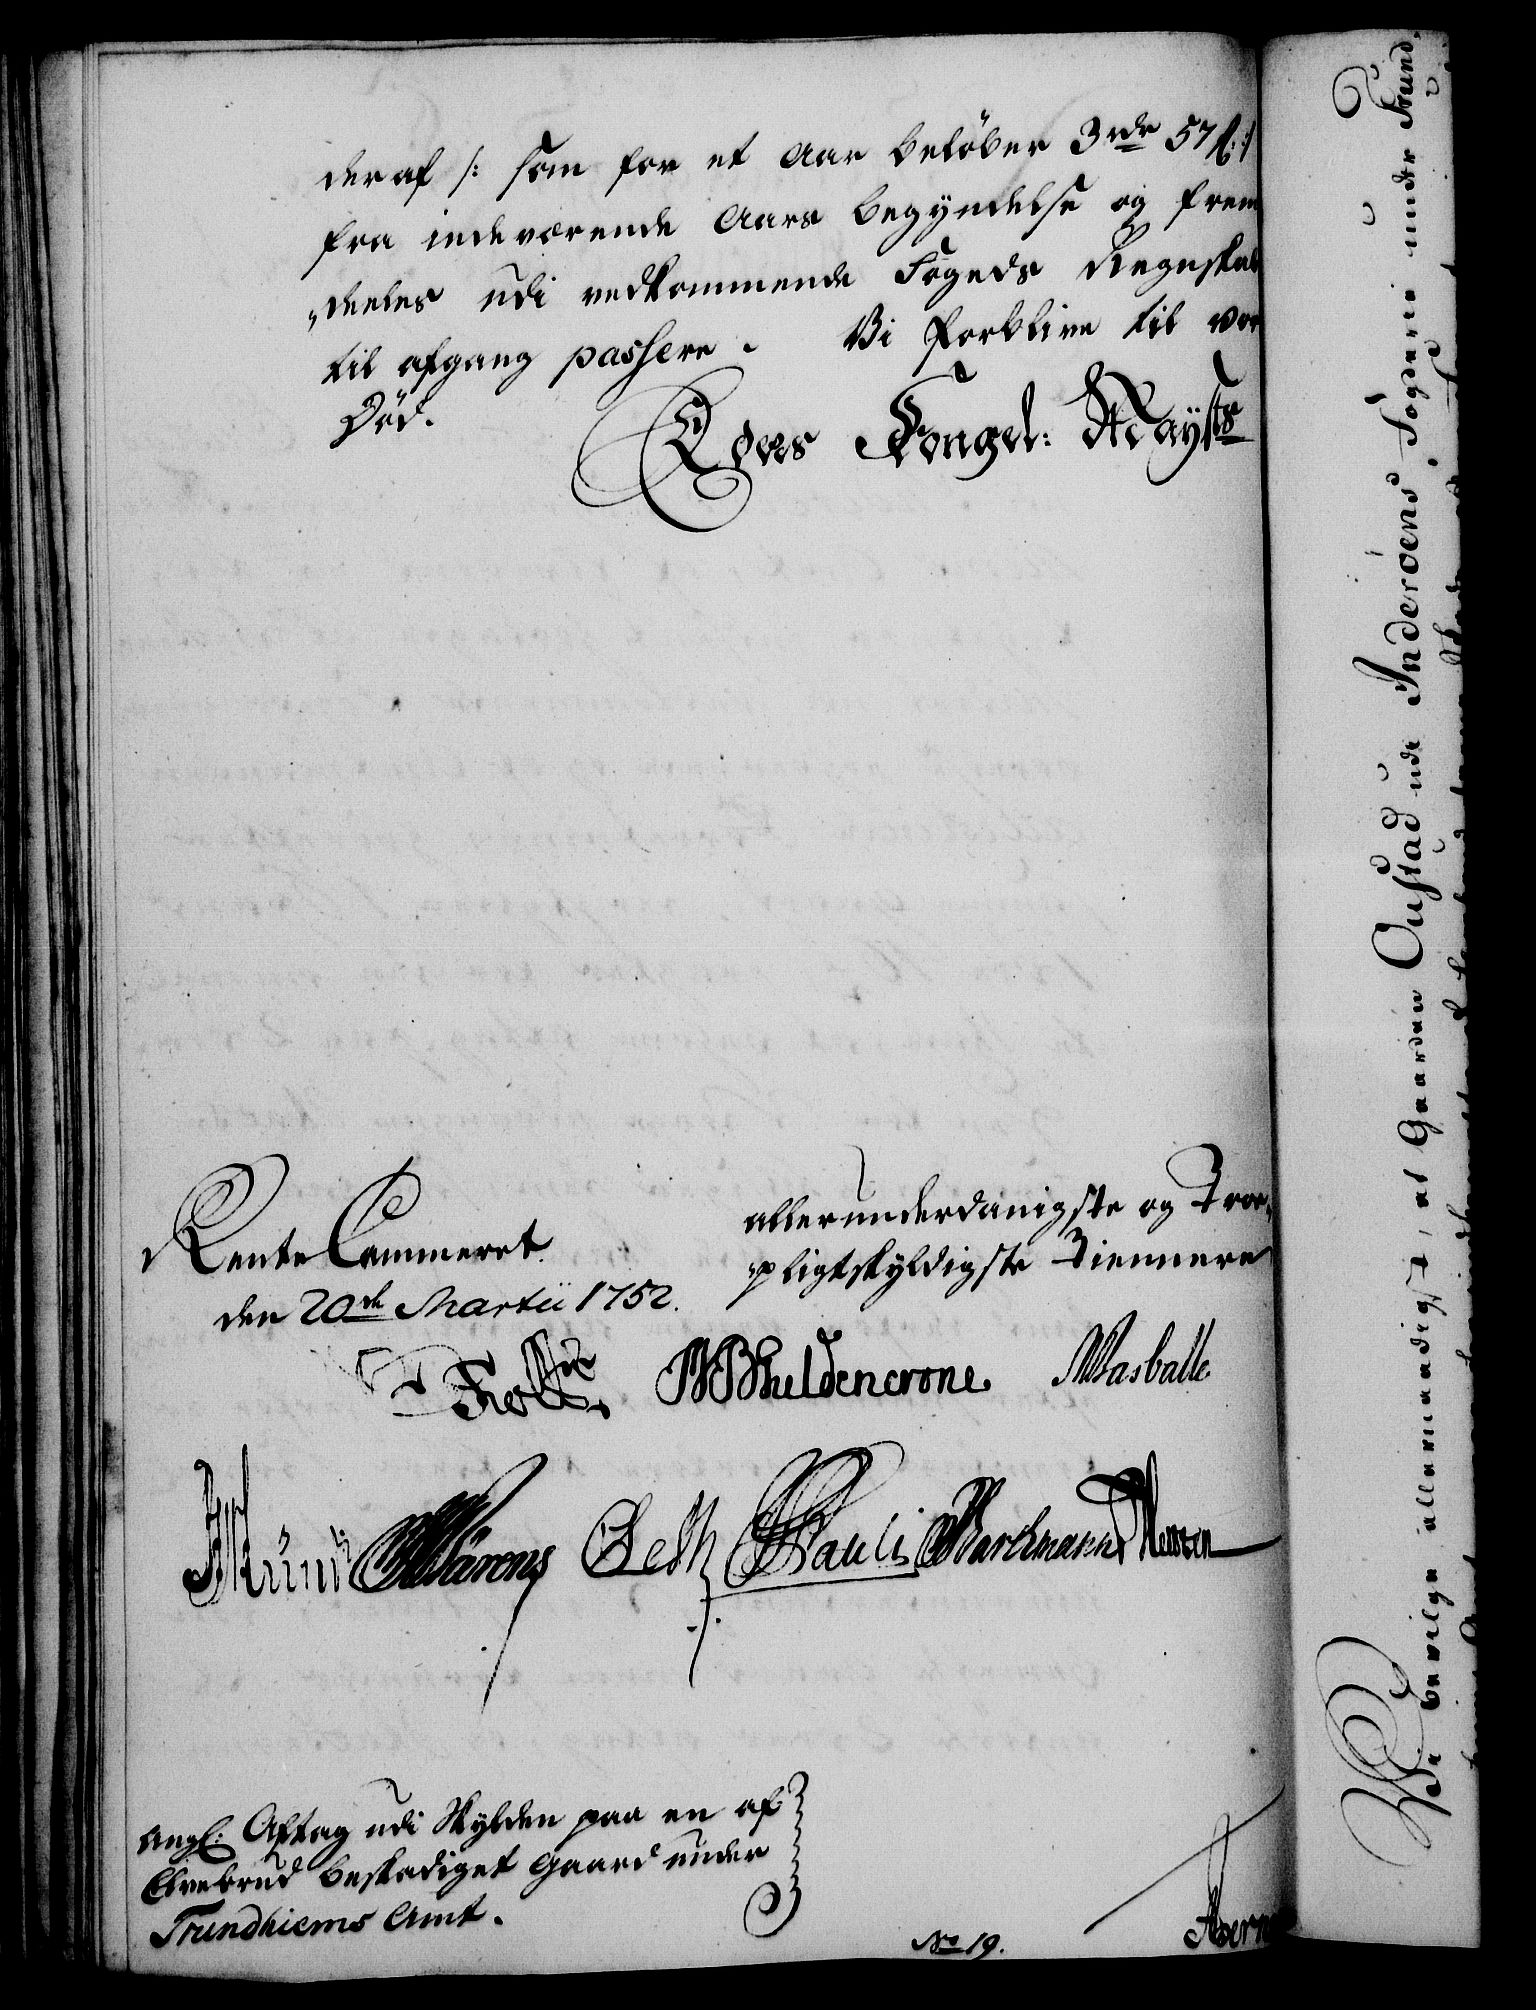 deraf /: som for et Aar beløber 3 rdr 57 ß :/
fra indeværende Aars begyndelse og frem
„deeles udi vedkommende Fogeds Regnskab
til afgang passere. Vi forblive til vor
Død.
Eders Kongel: Mayts
Rente Cammeret
den 20de Martii 1752.
allerunderdanigste og Troe„
„pligtskyldigste Tiennere
Holst
Huldencrone
Masballe
Wärens
OLeth
Pauli
Barchmann
Angl: Aftag udi Skylden paa en af
Elvebrud beskadiget Gaard under
Trundhiems Amt.
No 19.
Vi bevilge allernaadigst, at Gaarden Oustad udi Inderöens Fogderie under Trund„